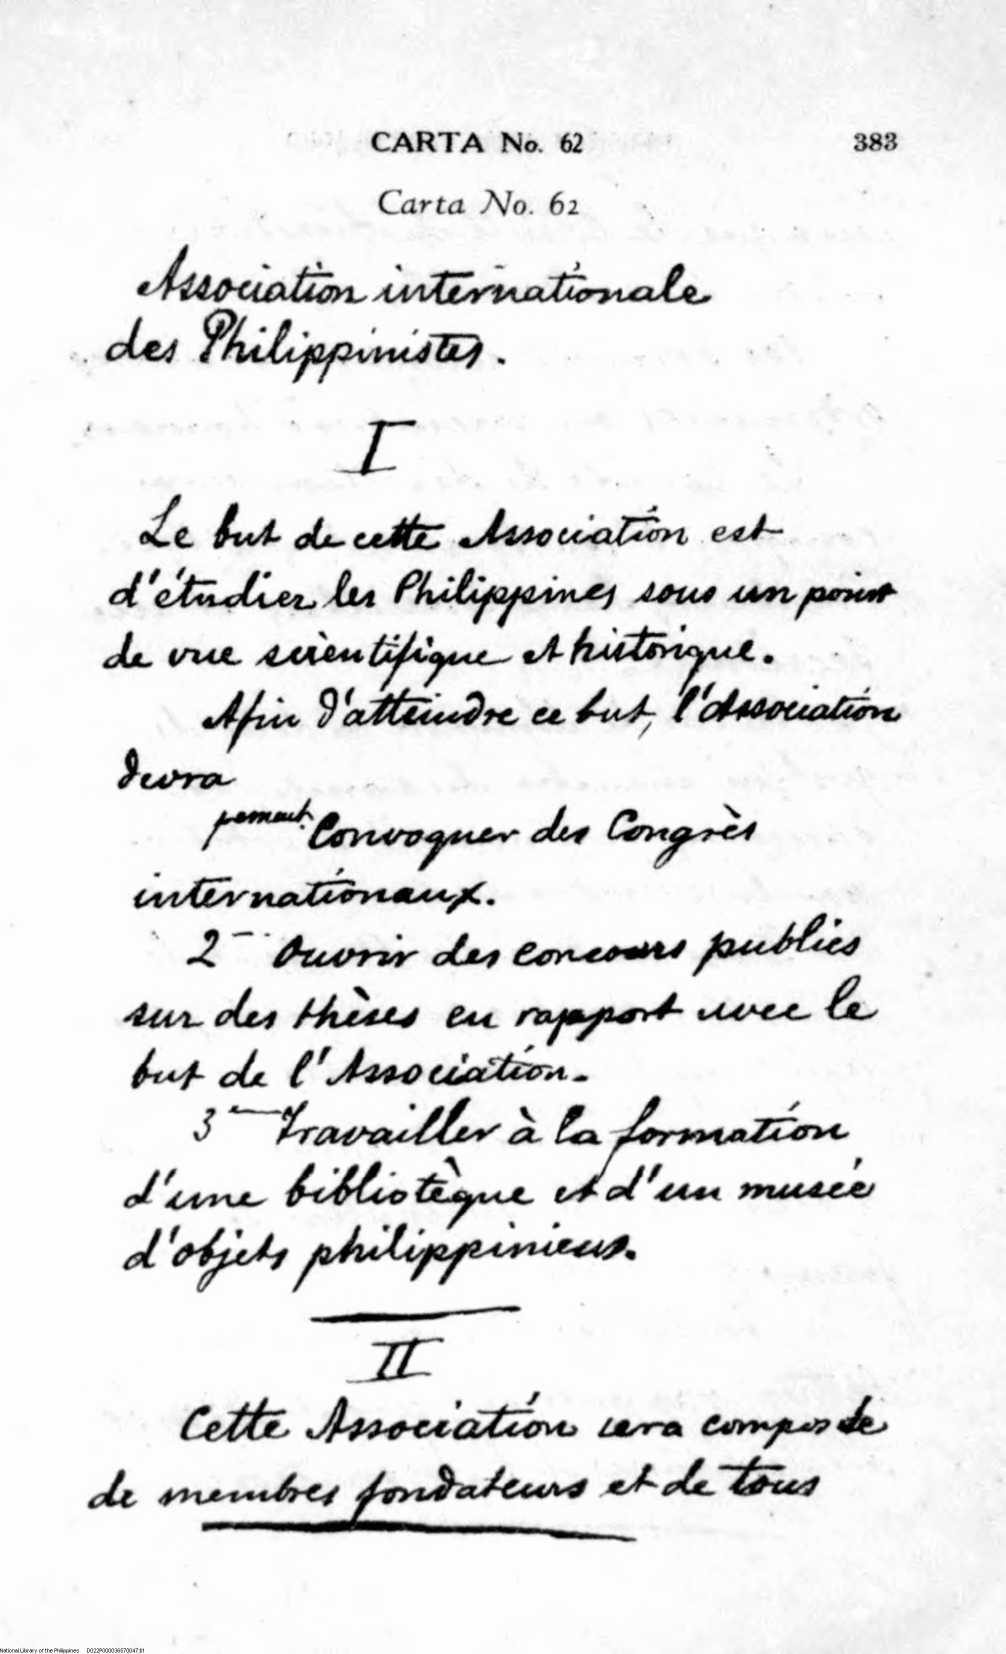 CARTA No. 62 383
Carta No. 62
Association internationale
des Philippinistes.
I
Le but de cette Association est
d'étudier les Philippines sous un point
de vue scientifique et historique.
Afin d'atteindre ce but, l'Association
devra
Convoquer des Congrès
internationaux.
2 Ouvrir des concours publics
sur des thèses en rapport avec le
but de l'Association.
3 Travailler à la formation
d'une bibliotèque et d'un musée
d'objets philippiniens.
II
Cette Association sera composée
de membres fondateurs et de tous
National Library of the Philippines